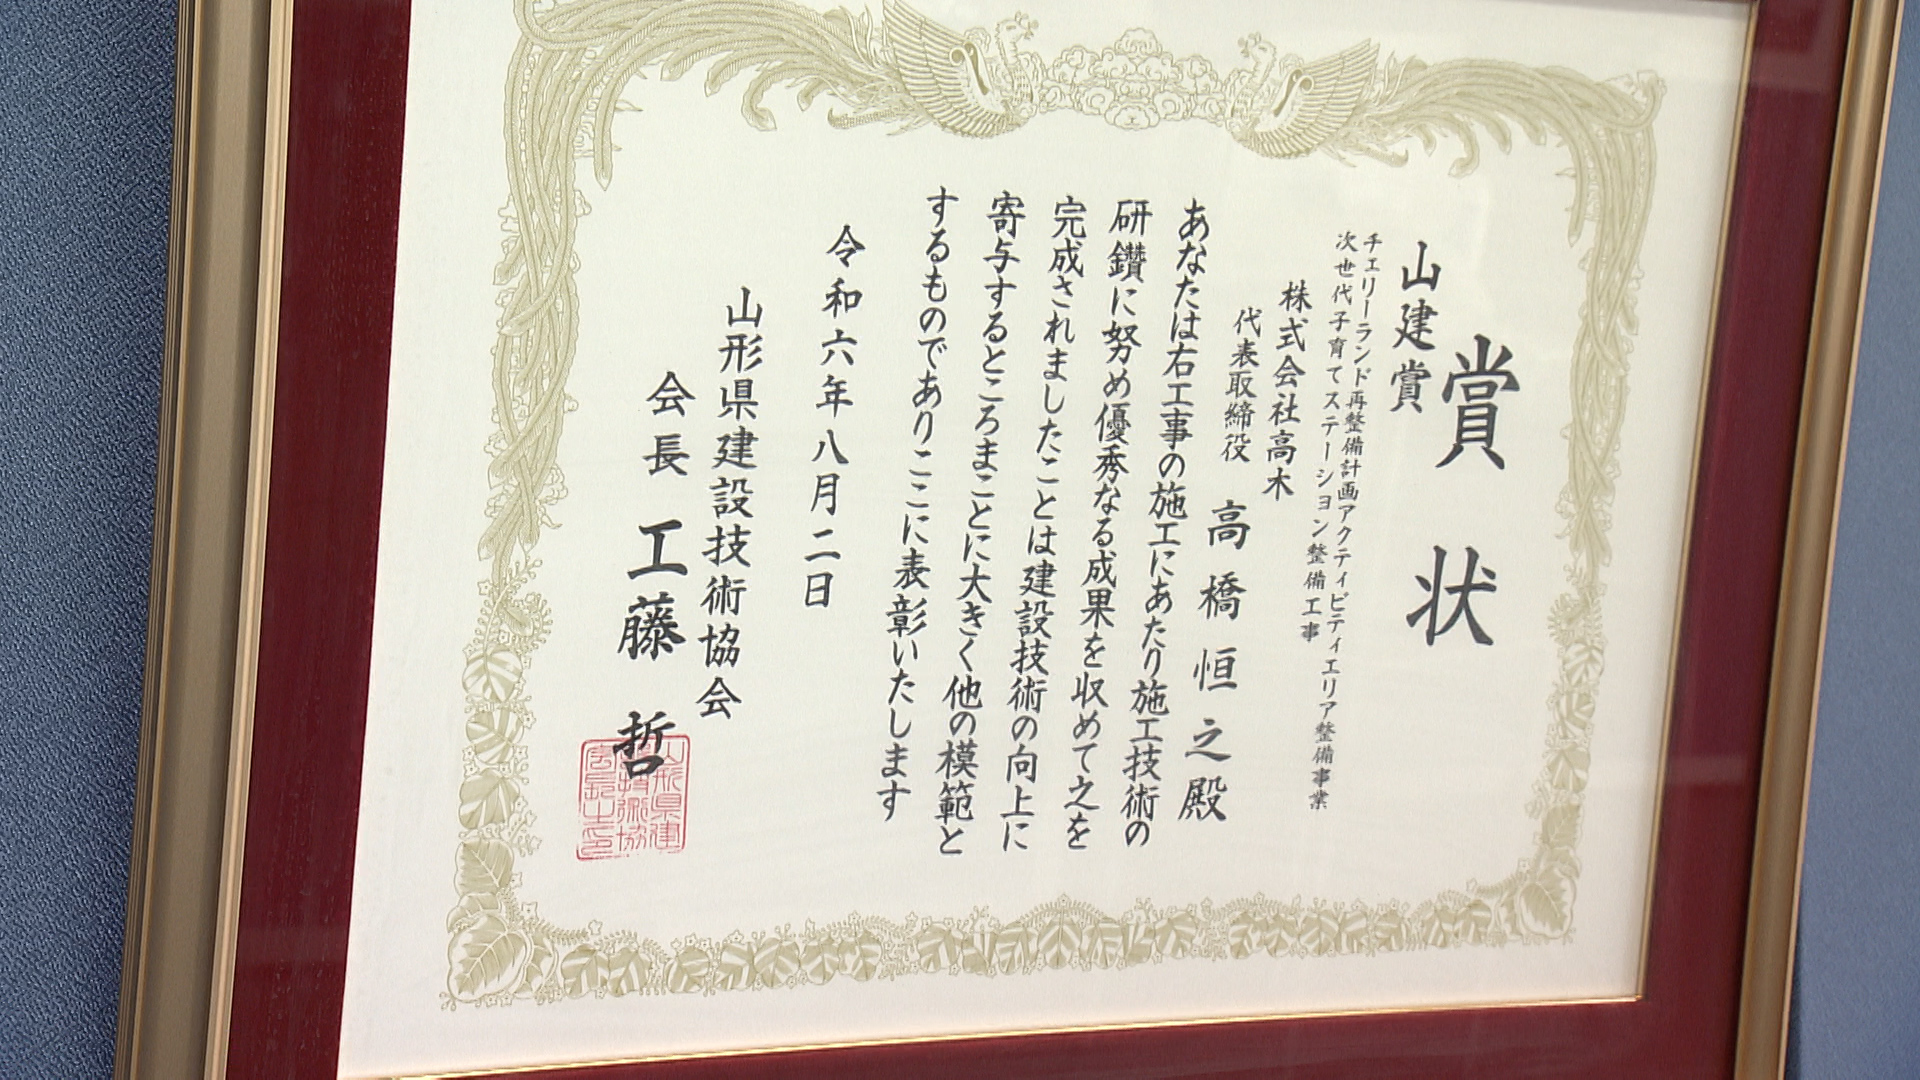 賞状
山建賞
チェリーランド再整備計画アクティビティエリア整備事業
次世代子育てステーション整備工事
株式会社高木
代表取締役 高橋恒之殿
あなたは右工事の施工にあたり施工技術の
研鑽に努め優秀なる成果を収めて之を
完成されましたことは建設技術の向上に
寄与するところまことに大きく他の模範と
するものでありここに表彰いたします
令和六年八月二日
山形県建設技術協会
会長 工藤哲
山形県建
設技術協
会長之印